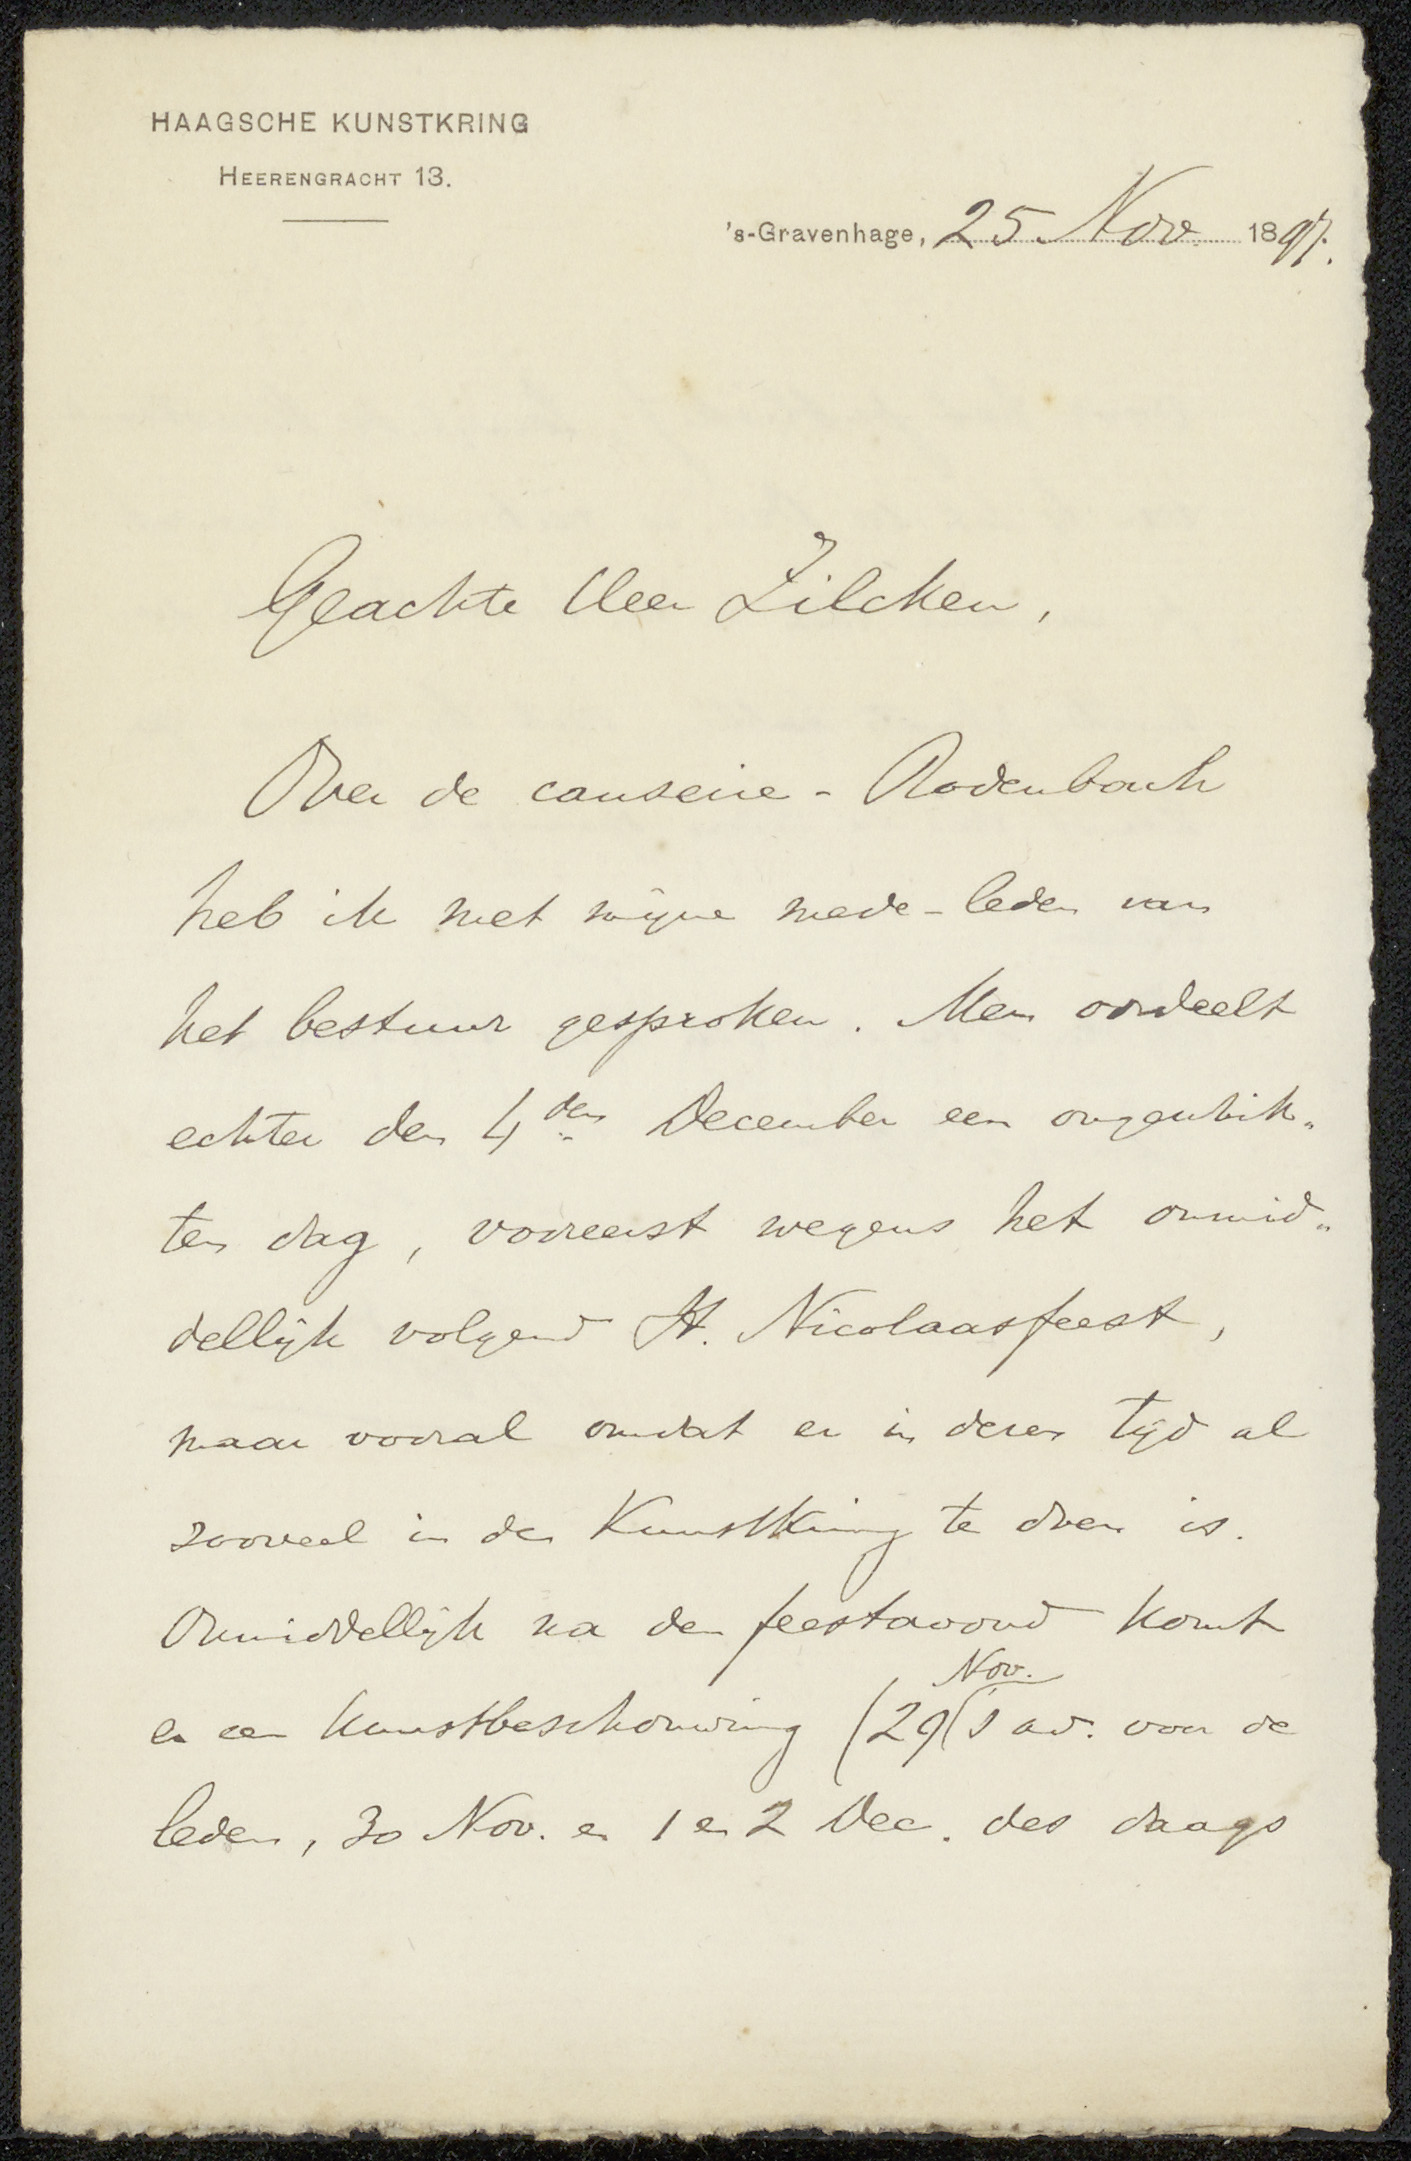 HAAGSCHE KUNSTKRING
HEERENGRACHT 13.
's-Gravenhage, 25 Nov. 1897.
Geachte Heer Zilcken,
Over de causerie - Rodenbach
heb ik met mijne mede-leden van
het bestuur gesproken. Men oordeelt
echter den 4den December een ongeschik„
ten dag, vooreerst wegens het onmid„
dellijk volgend St. Nicolaasfeest,
maar vooral omdat er in dezen tijd al
zooveel in den Kunstkring te doen is.
Onmiddellijk na den feestavond komt
Nov.
er een kunstbeschouwing (29 's av. voor de
leden, 30 Nov. en 1 en 2 Dec. des daags